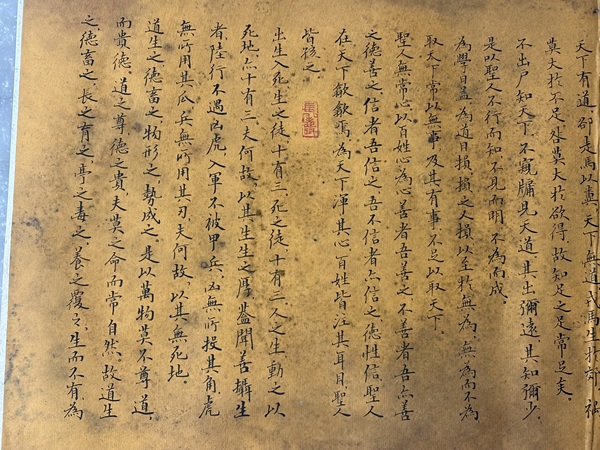 天下有道卻走馬以糞天下無道戎馬生於郊禍
莫大於不足咎莫大於欲得故知足之足常足矣。
不出戶知天下不窺牖見天道其出彌遠其知彌少。
是以聖人不行而知不見而明不為而成。
為學日益為道日損損之又損以至於無為無為而不為
取天下常以無事及其有事不足以取天下。
聖人無常心以百姓心為心善者吾善之不善者吾亦善
之德善之信者吾信之吾不信者亦信之德性信聖人
在天下歙歙焉為天下渾其心百姓皆注其耳目聖人
皆孩之。
出生入死生之徒十有三死之徒十有三人之生動之以
死地亦十有三夫何故以其生生之厚蓋聞善攝生
者陸行不遇兕虎入軍不被甲兵兕無所投其角虎
無所用其爪兵無所用其刃夫何故以其無死地。
道生之德畜之物形之勢成之是以萬物莫不尊道
而貴德道之尊德之貴夫莫之命而常自然故道生
之德畜之長之育之亭之毒之養之覆之生而不有為